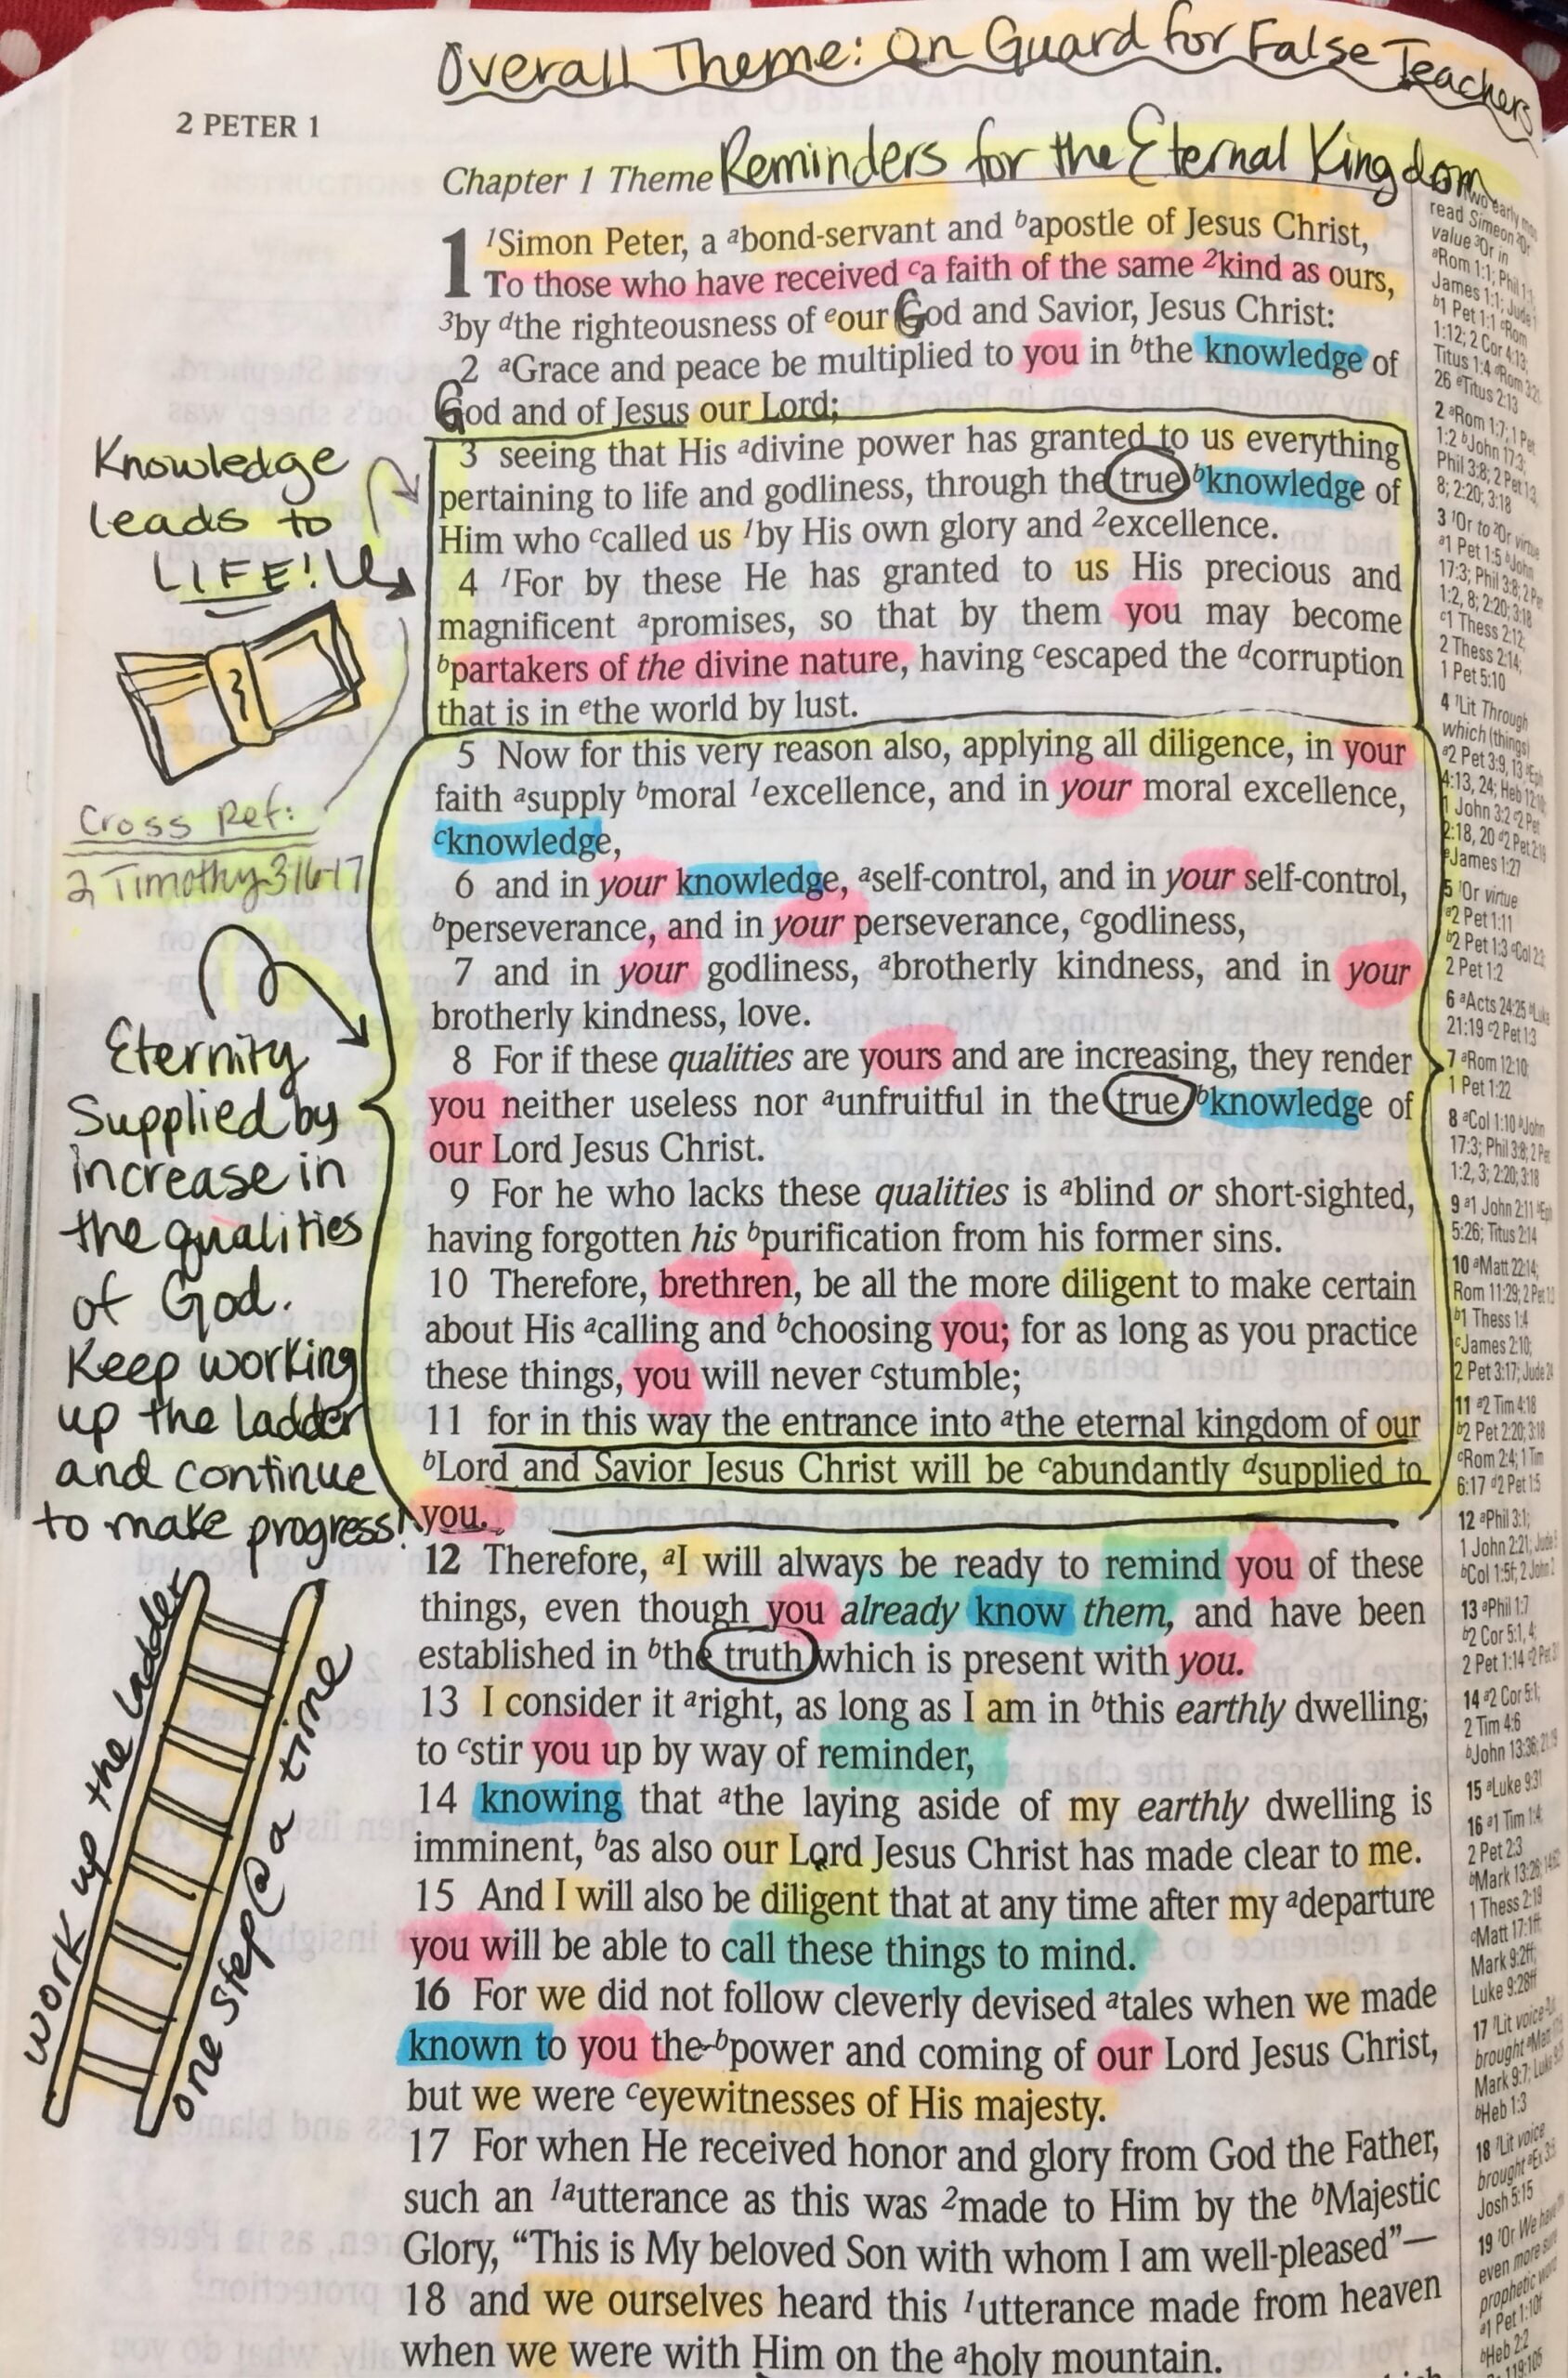 Overall Theme: On Guard for False Teachers
2 PETER 1
Chapter 1 Theme Reminders for the Eternal Kingdom
1 1Simon Peter, a abond-servant and bapostle of Jesus Christ,
To those who have received ca faith of the same 2kind as ours,
3by dthe righteousness of eour God and Savior, Jesus Christ:
2 aGrace and peace be multiplied to you in bthe knowledge of
God and of Jesus our Lord;
3 seeing that His adivine power has granted to us everything
pertaining to life and godliness, through the true bknowledge of
Him who ccalled us 1by His own glory and 2excellence.
4 1For by these He has granted to us His precious and
magnificent apromises, so that by them you may become
bpartakers of the divine nature, having cescaped the dcorruption
that is in ethe world by lust.
5 Now for this very reason also, applying all diligence, in your
faith asupply bmoral 1excellence, and in your moral excellence,
cknowledge,
6 and in your knowledge, aself-control, and in your self-control,
bperseverance, and in your perseverance, cgodliness,
7 and in your godliness, abrotherly kindness, and in your
brotherly kindness, love.
8 For if these qualities are yours and are increasing, they render
you neither useless nor aunfruitful in the true bknowledge of
our Lord Jesus Christ.
9 For he who lacks these qualities is ablind or short-sighted,
having forgotten his bpurification from his former sins.
10 Therefore, brethren, be all the more diligent to make certain
about His acalling and bchoosing you; for as long as you practice
these things, you will never cstumble;
11 for in this way the entrance into athe eternal kingdom of our
bLord and Savior Jesus Christ will be cabundantly dsupplied to
you.
12 Therefore, aI will always be ready to remind you of these
things, even though you already know them, and have been
established in bthe truth which is present with you.
13 I consider it aright, as long as I am in bthis earthly dwelling,
to cstir you up by way of reminder,
14 knowing that athe laying aside of my earthly dwelling is
imminent, bas also our Lord Jesus Christ has made clear to me.
15 And I will also be diligent that at any time after my adeparture
you will be able to call these things to mind.
16 For we did not follow cleverly devised atales when we made
known to you the bpower and coming of our Lord Jesus Christ,
but we were ceyewitnesses of His majesty.
17 For when He received honor and glory from God the Father,
such an 1autterance as this was 2made to Him by the bMajestic
Glory, “This is My beloved Son with whom I am well-pleased”—
18 and we ourselves heard this 1utterance made from heaven
when we were with Him on the aholy mountain.
Knowledge
leads to
LIFE!
Cross Ref:
2 Timothy 3:16-17
Eternity
Supplied by
increase in
the qualities
of God.
Keep working
up the ladder
and continue
to make progress!
work up the ladder
one step @ a time
two early
read Simeon
value 3Or in
aRom 1:1; Phil 1:1;
James 1:1; Jude
b1 Pet 1:1 cRom
1:12; 2 Cor 4:13;
Titus 1:4
26 eTitus 2:13
2 aRom 1:7; 1 Pet
1:2 bJohn 17:3;
Phil 3:8; 2 Pet 1:3,
8; 2:20; 3:18
3 1Or to 2Or virtue
a1 Pet 1:5 bJohn
17:3; Phil 3:8; 2 Pet
1:2, 8; 2:20; 3:18
c1 Thess 2:12;
2 Thess 2:14;
1 Pet 5:10
4 1Lit Through
which (things)
a2 Pet 3:9, 13 bEph
4:13, 24; Heb 12:10;
1 John 3:2 c2 Pet
2:18, 20 d2 Pet 2:19
eJames 1:27
5 1Or virtue
a2 Pet 1:11
b2 Pet 1:3 cCol 2:3;
2 Pet 1:2
6 aActs 24:25 bLuke
21:19 c2 Pet 1:3
7 aRom 12:10;
1 Pet 1:22
8 aCol 1:10 bJohn
17:3; Phil 3:8; 2 Pet
1:2, 3; 2:20; 3:18
9 a1 John 2:11 bEph
5:26; Titus 2:14
10 aMatt 22:14;
Rom 11:29; 2 Pet 1:3
b1 Thess 1:4
cJames 2:10;
2 Pet 3:17; Jude 24
11 a2 Tim 4:18
b2 Pet 2:20; 3:18
cRom 2:4; 1 Tim
6:17 d2 Pet 1:5
12 aPhil 3:1;
1 John 2:21; Jude 5
bCol 1:5f; 2 John 2
13 aPhil 1:7
b2 Cor 5:1, 4;
2 Pet 1:14 c2 Pet 3:1
14 a2 Cor 5:1;
2 Tim 4:6
bJohn 13:36; 21:19
15 aLuke 9:31
16 a1 Tim 1:4;
2 Pet 2:3
bMark 13:26; 14:62;
1 Thess 2:19
cMatt 17:1ff;
Mark 9:2ff;
Luke 9:28ff
17 1Lit voice
brought aMatt
Mark 9:7; Luke
bHeb 1:3
18 1Lit voice
brought aEx 3:5;
Josh 5:15
19 1Or We have
even more sure
prophetic word
a1 Pet 1:10f
bHeb 2:2
119:105